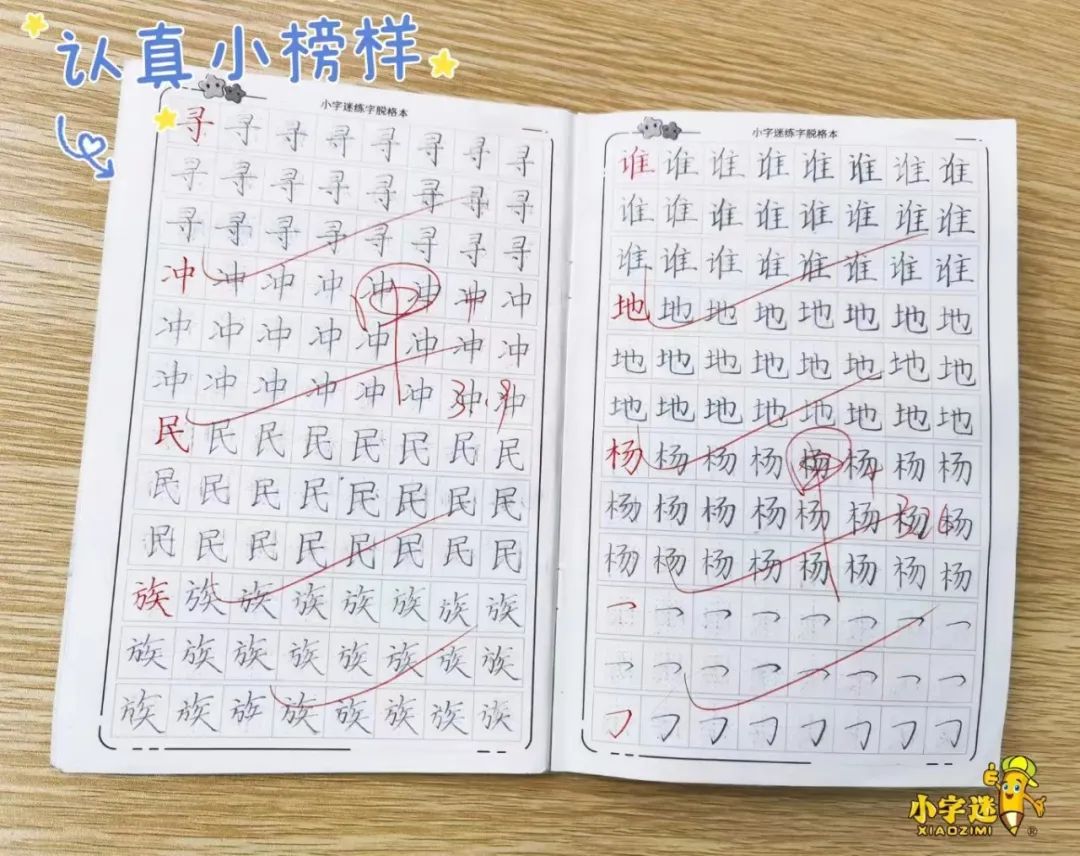 认真小榜样
小字迷练字脱格本
寻寻寻寻寻寻寻寻
寻寻寻寻寻寻寻寻
寻寻寻寻寻寻寻寻
冲冲冲冲冲冲冲冲
冲冲冲冲冲冲冲冲
冲冲冲冲冲冲冲冲
民民民民民民民民
民民民民民民民民
民民民民民民民民
族族族族族族族族
族族族族族族族族
族族族族族族族族
小字迷练字脱格本
谁谁谁谁谁谁谁谁
谁谁谁谁谁谁谁谁
谁谁谁谁谁谁谁谁
地地地地地地地地
地地地地地地地地
地地地地地地地地
杨杨杨杨杨杨杨杨
杨杨杨杨杨杨杨杨
杨杨杨杨杨杨杨杨
㇖㇖㇖㇖㇖㇖㇖㇖
㇖㇖㇖㇖㇖㇖㇖㇖
㇆㇆㇆㇆㇆㇆㇆㇆
小字迷
XIAOZIMI